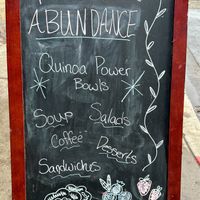 ABUNDANCE
Quinoa Power
Bowls
Soup Salads
Coffee
Desserts
Sandwiches